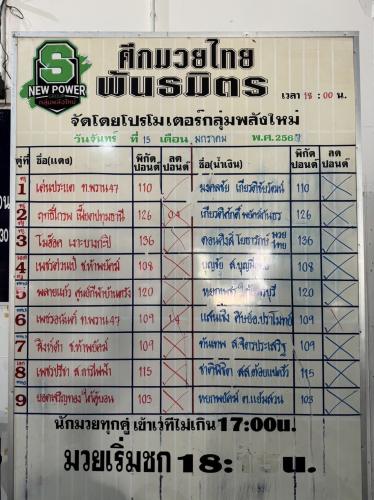 S
NEW POWER
กลุ่มพลังใหม่
ศึกมวยไทย
พันธมิตร
เวลา 18 : 00 น.
จัดโดยโปรโมเตอร์กลุ่มพลังใหม่
วันจันทร์ ที่ 15 เดือน มกราคม พ.ศ.256
คู่ที่ ชื่อ(แดง) พิกัดปอนด์ ลดปอนด์ ชื่อ(น้ำเงิน) พิกัดปอนด์ ลดปอนด์
1 เด่นประแด ท.พราน47 110 มงคลชัย เกียรติชัยวัฒน์ 110
2 ฤทธิไกรพ เมืองปทุมธานี 126 0.4 เกียรติศักดิ์ 126
3 โนฮ็อค เงาะบางกะปิ 136 ดอนคิงส์ โยธารักษ์มวยไทย 136
4 เพชรด่วนเป้ ช.ห้าพยัคฆ์ 108 บุญชัย 108
5 พลายแก้ว 120 120
6 ท.พราน47 109 1.4 แสนเชิง 109
7 สิงห์ดำ ช.ห้าพยัคฆ์ 109 ทันเทพ ส.จิตรประเสริฐ 109
8 เพชรปรีชา ส.การไฟฟ้า 115 ชาติพิชิต 115
9 ยอดเจริญทอง ใต้ตู้บอน 103 หยกพยัคฆ์ ต.แย้มสวน 103
นักมวยทุกคู่ เข้าเวทีไม่เกิน 17:00น.
มวยเริ่มชก 18: น.